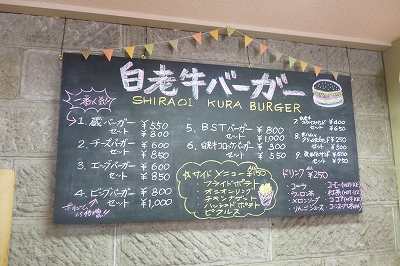 白老牛バーガー
SHIRAOI KURA BURGER
一番人気!!
1. 蔵バーガー ¥550
セット ¥800
2. チーズバーガー ¥600
セット
3. エッグバーガー ¥600
セット
4. ビッグバーガー ¥800
セット ¥1,000
5. BSTバーガー ¥800
セット ¥1,000
6. 白老牛コロッケバーガー ¥300
セット ¥550
¥400
セット ¥650
¥250
セット
セット
サイドメニュー ¥150
・フライドポテト
・オニオンリング
・チキンナゲット
・ハッシュドポテト
・ピクルス
ドリンク ¥250
・コーラ
・ウーロン茶
・メロンソーダ
・りんごジュース